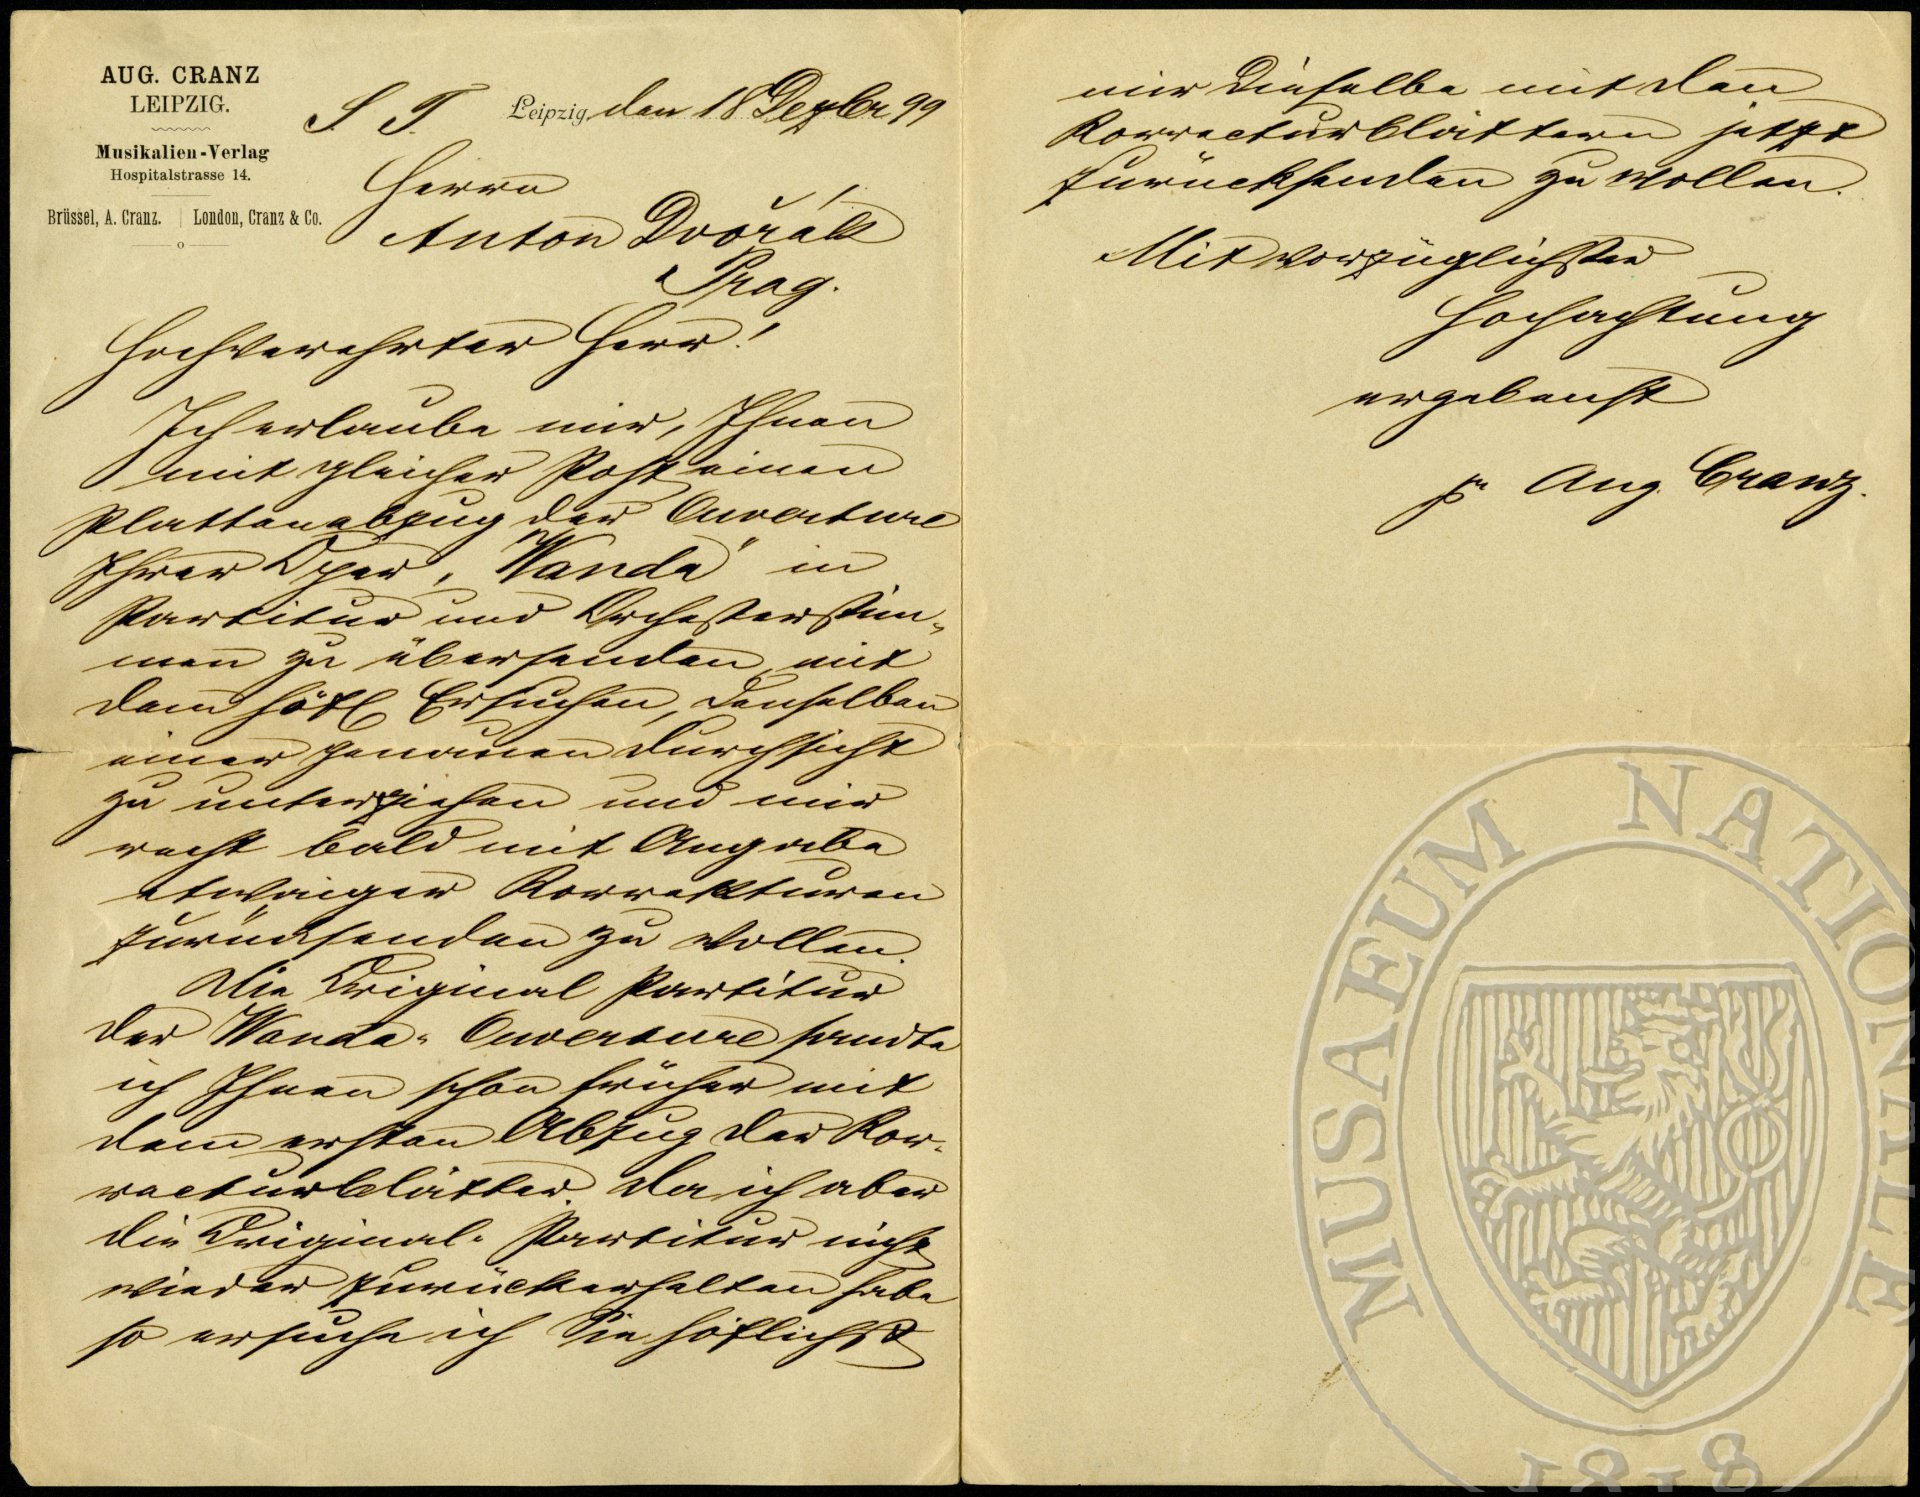 AUG. CRANZ
LEIPZIG.
Musikalien-Verlag
Hospitalstrasse 14.
Brüssel, A. Cranz. | London, Cranz & Co.
S. T. Leipzig, den 18 Dezbr 99
Herrn
Anton Dvořák
Prag.
Hochverehrter Herr!
Ich erlaube mir, Ihnen
mit gleicher Post einen
Plattenabzug der Ouverture
Ihrer Oper „Wanda" in
Partitur und Orchesterstim-
men zu übersenden, mit
dem höfl Ersuchen, denselben
einer genauen Durchsicht
zu unterziehen und mir
recht bald mit Angabe
etwaiger Korrekturen
zurücksenden zu wollen.
Die Original Partitur
der Wanda-Ouverture sandte
ich Ihnen schon früher mit
dem ersten Abzug der Kor-
recturblätter. Da ich aber
die Original-Partitur nicht
wieder zurückerhalten habe
so ersuche ich Sie höflichst
mir dieselbe mit den
Korrecturblättern jetzt
zurücksenden zu wollen.
Mit vorzüglichster
Hochachtung
ergebenst
pr Aug. Cranz.
MUSAEUM NATIONALE
1818